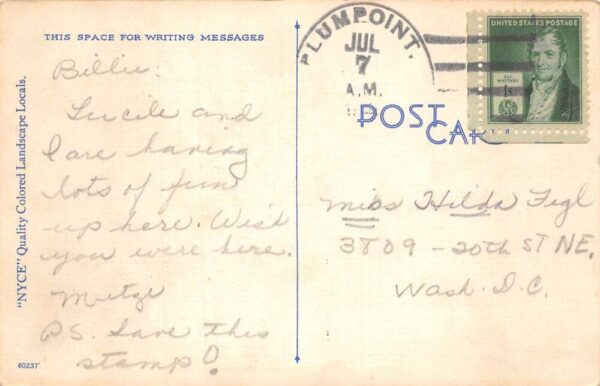 THIS SPACE FOR WRITING MESSAGES
PLUMPOINT,
JUL
7
A.M.
UNITED STATES POSTAGE
ELI
WHITNEY
1
POST
CARD
"NYCE" Quality Colored Landscape Locals.
Billie:
Lucile and
I are having
lots of fun
up here. Wish
you were here.
Mitze
P.S. Save this
stamp!
Miss Hilda Figl
3809 - 20th ST NE,
Wash. D.C.
60237